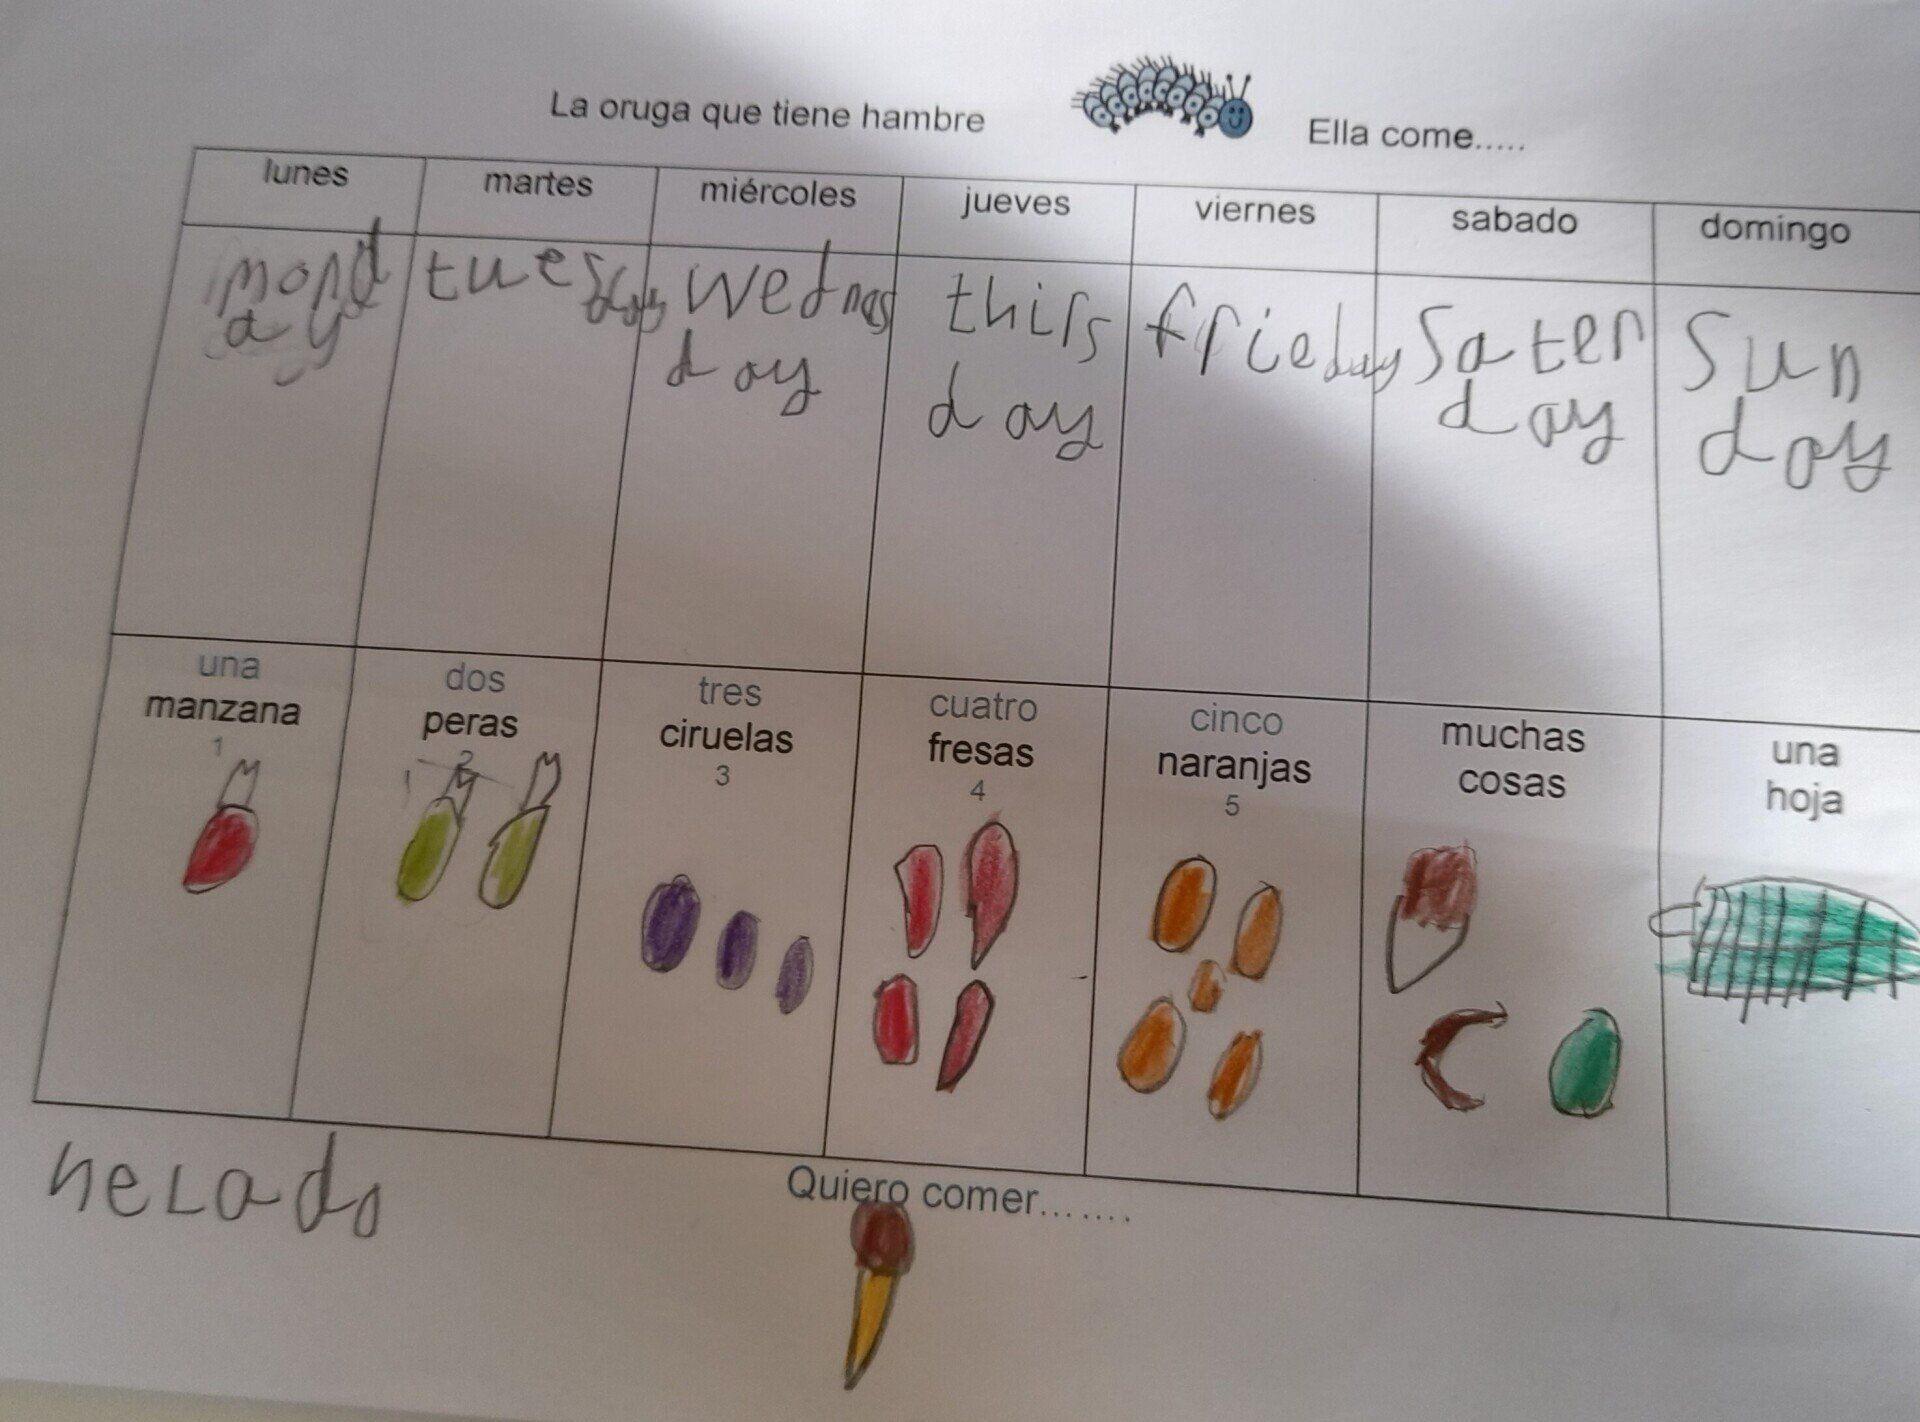 La oruga que tiene hambre
Ella come.....
lunes martes miércoles jueves viernes sabado domingo
mond
ay
tuesday
wednes
day
thirs
day
frieday
sater
day
sun
day
una
manzana
1
dos
peras
2
tres
ciruelas
3
cuatro
fresas
4
cinco
naranjas
5
muchas
cosas
una
hoja
helado
Quiero comer.......